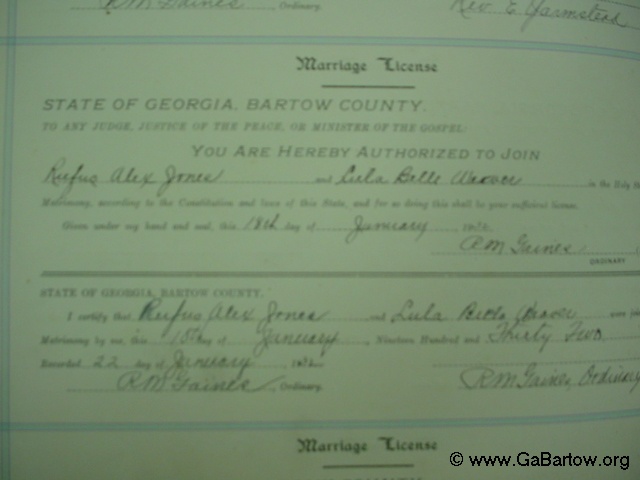 RM Gaines, Ordinary.
Rev. E.
Marriage License
STATE OF GEORGIA, BARTOW COUNTY.
TO ANY JUDGE, JUSTICE OF THE PEACE, OR MINISTER OF THE GOSPEL:
YOU ARE HEREBY AUTHORIZED TO JOIN
Rufus Alex Jones and Lula Belle in the Holy
Matrimony, according to the Constitution and laws of this State, and for so doing this shall be your sufficient license.
Given under my hand and seal, this 18th day of January 1932
RM Gaines
ORDINARY
STATE OF GEORGIA, BARTOW COUNTY.
I certify that Rufus Alex Jones and Lula Belle were
Matrimony by me, this day of January, Nineteen Hundred and Thirty Two
Recorded 22 day of January, 1932
RM Gaines, Ordinary.
RM Gaines, Ordinary
Marriage License
© www.GaBartow.org